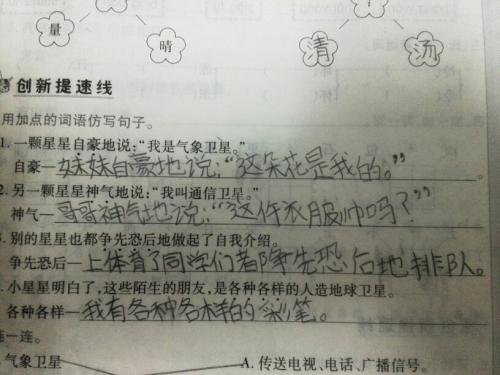 量
晴
清 汤
创新提速线
用加点的词语仿写句子。
1.一颗星星自豪地说:“我是气象卫星。”
自豪—妹妹自豪地说:“这朵花是我的。”
2.另一颗星星神气地说:“我叫通信卫星。”
神气—哥哥神气地说:“这件衣服帅吗?”
别的星星也都争先恐后地做起了自我介绍。
争先恐后—上体育了同学们都争先恐后地排队。
小星星明白了,这些陌生的朋友,是各种各样的人造地球卫星。
各种各样—我有各种各样的彩笔。
连一连。
气象卫星 A.传送电视、电话、广播信号。